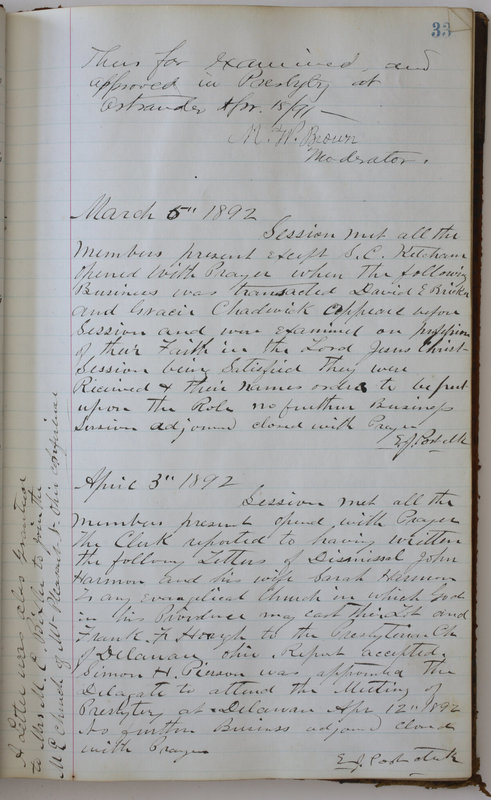 33
Thus far examined and
approved in Presbytry at
Ostrander Apr. 15/91 —
M. W. Brown
Moderator.
March 5" 1892
Session met all the
members present except S. C. Ketcham
opened with Prayer when the following
Business was transacted David E
and Gracie Chadwick before
Session and were examined on profession
of their Faith in the Lord Jesus Christ
Session being Satisfied They were
Received & their names order to be put
upon the Role no further Business
Session adjourned closed with Prayer
E. J. Post clk
April 3" 1892
Session met all the
members present opend with Prayer
The Clerk reported to having written
the following Letters of Dismissal John
Harmon and his wife Sarah Harmon
To any Evangelical Church in which God
in his Providence may cast their Lot and
Frank F. to the Presbyterian Ch
of Delawar Ohio Report accepted
Simon H. Pierson was appointed the
Delagate to attend the Meeting of
Presbytry at Delawar Apr 12" 1892
No further Business adjournd closed
with Prayer
E J Post clerk
A Letter was also granted
to Mrs M. C. to join the
M E church of Mt Pleasant Ohio conference